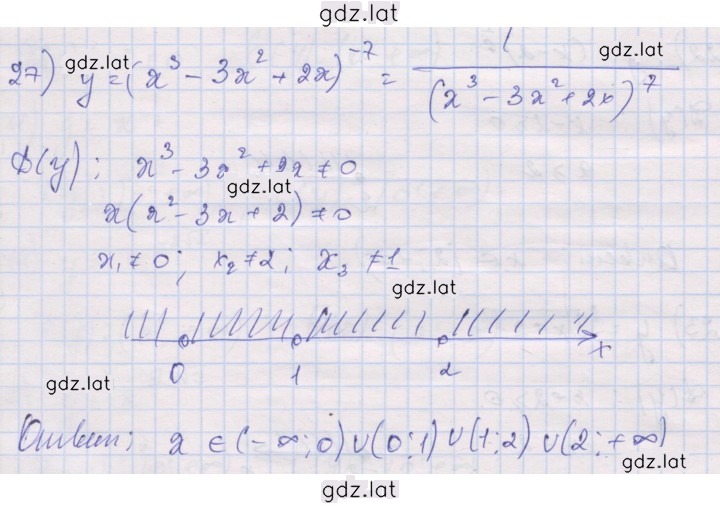 gdz.lat
27) y = (x³ - 3x² + 2x)⁻⁷ = 1/(x³ - 3x² + 2x)⁷
gdz.lat gdz.lat
D(y): x³ - 3x² + 2x ≠ 0
gdz.lat
x(x² - 3x + 2) ≠ 0
x₁ ≠ 0; x₂ ≠ 2; x₃ ≠ 1
gdz.lat
0 1 2 x
gdz.lat
Ответ: x ∈ (-∞; 0) ∪ (0; 1) ∪ (1; 2) ∪ (2; +∞)
gdz.lat
gdz.lat